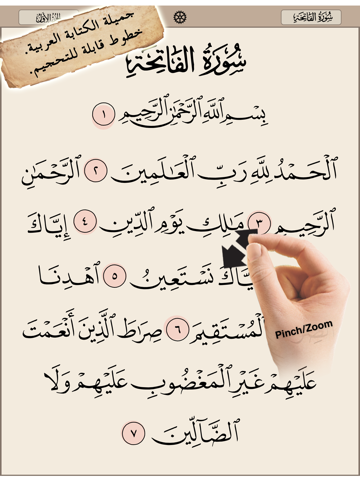 سُورَةُ الفَاتِحَةِ
جميلة الكتابة العربية.
خطوط قابلة للتحجيم.
سُورَةُ الفَاتِحَةِ
بِسْمِ ٱللَّهِ ٱلرَّحْمَٰنِ ٱلرَّحِيمِ ١
ٱلْحَمْدُ لِلَّهِ رَبِّ ٱلْعَٰلَمِينَ ٢ ٱلرَّحْمَٰنِ
ٱلرَّحِيمِ ٣ مَٰلِكِ يَوْمِ ٱلدِّينِ ٤ إِيَّاكَ
نَسْتَعِينُ ٥ ٱهْدِنَا
ٱلْمُسْتَقِيمَ ٦ صِرَٰطَ ٱلَّذِينَ أَنْعَمْتَ
عَلَيْهِمْ غَيْرِ ٱلْمَغْضُوبِ عَلَيْهِمْ وَلَا
ٱلضَّآلِّينَ ٧
Pinch/Zoom